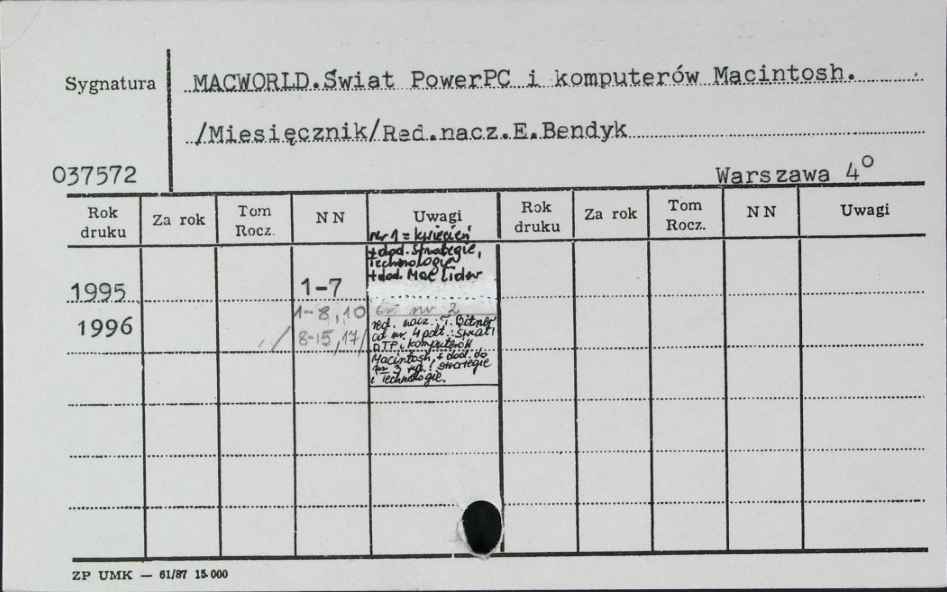 Sygnatura MACWORLD.Świat PowerPC i komputerów Macintosh.
/Miesięcznik/Red.nacz.E.Bendyk
037572 Warszawa 4⁰
Rok druku Za rok Tom Rocz. NN Uwagi Rok druku Za rok Tom Rocz. NN Uwagi
nr 1 = kwiecień
+dod. Strategie,
Technologie
+dod. Mac Lider
1995 1-7
1-8,10 nr 2
1996
red. nacz. T. Bitner
od nr. 4 podt.: Świat
/8-15,17/ DTP i komputerów
Macintosh, + dod. do
nr 3 : strategie
i technologie.
ZP UMK — 61/87 15.000